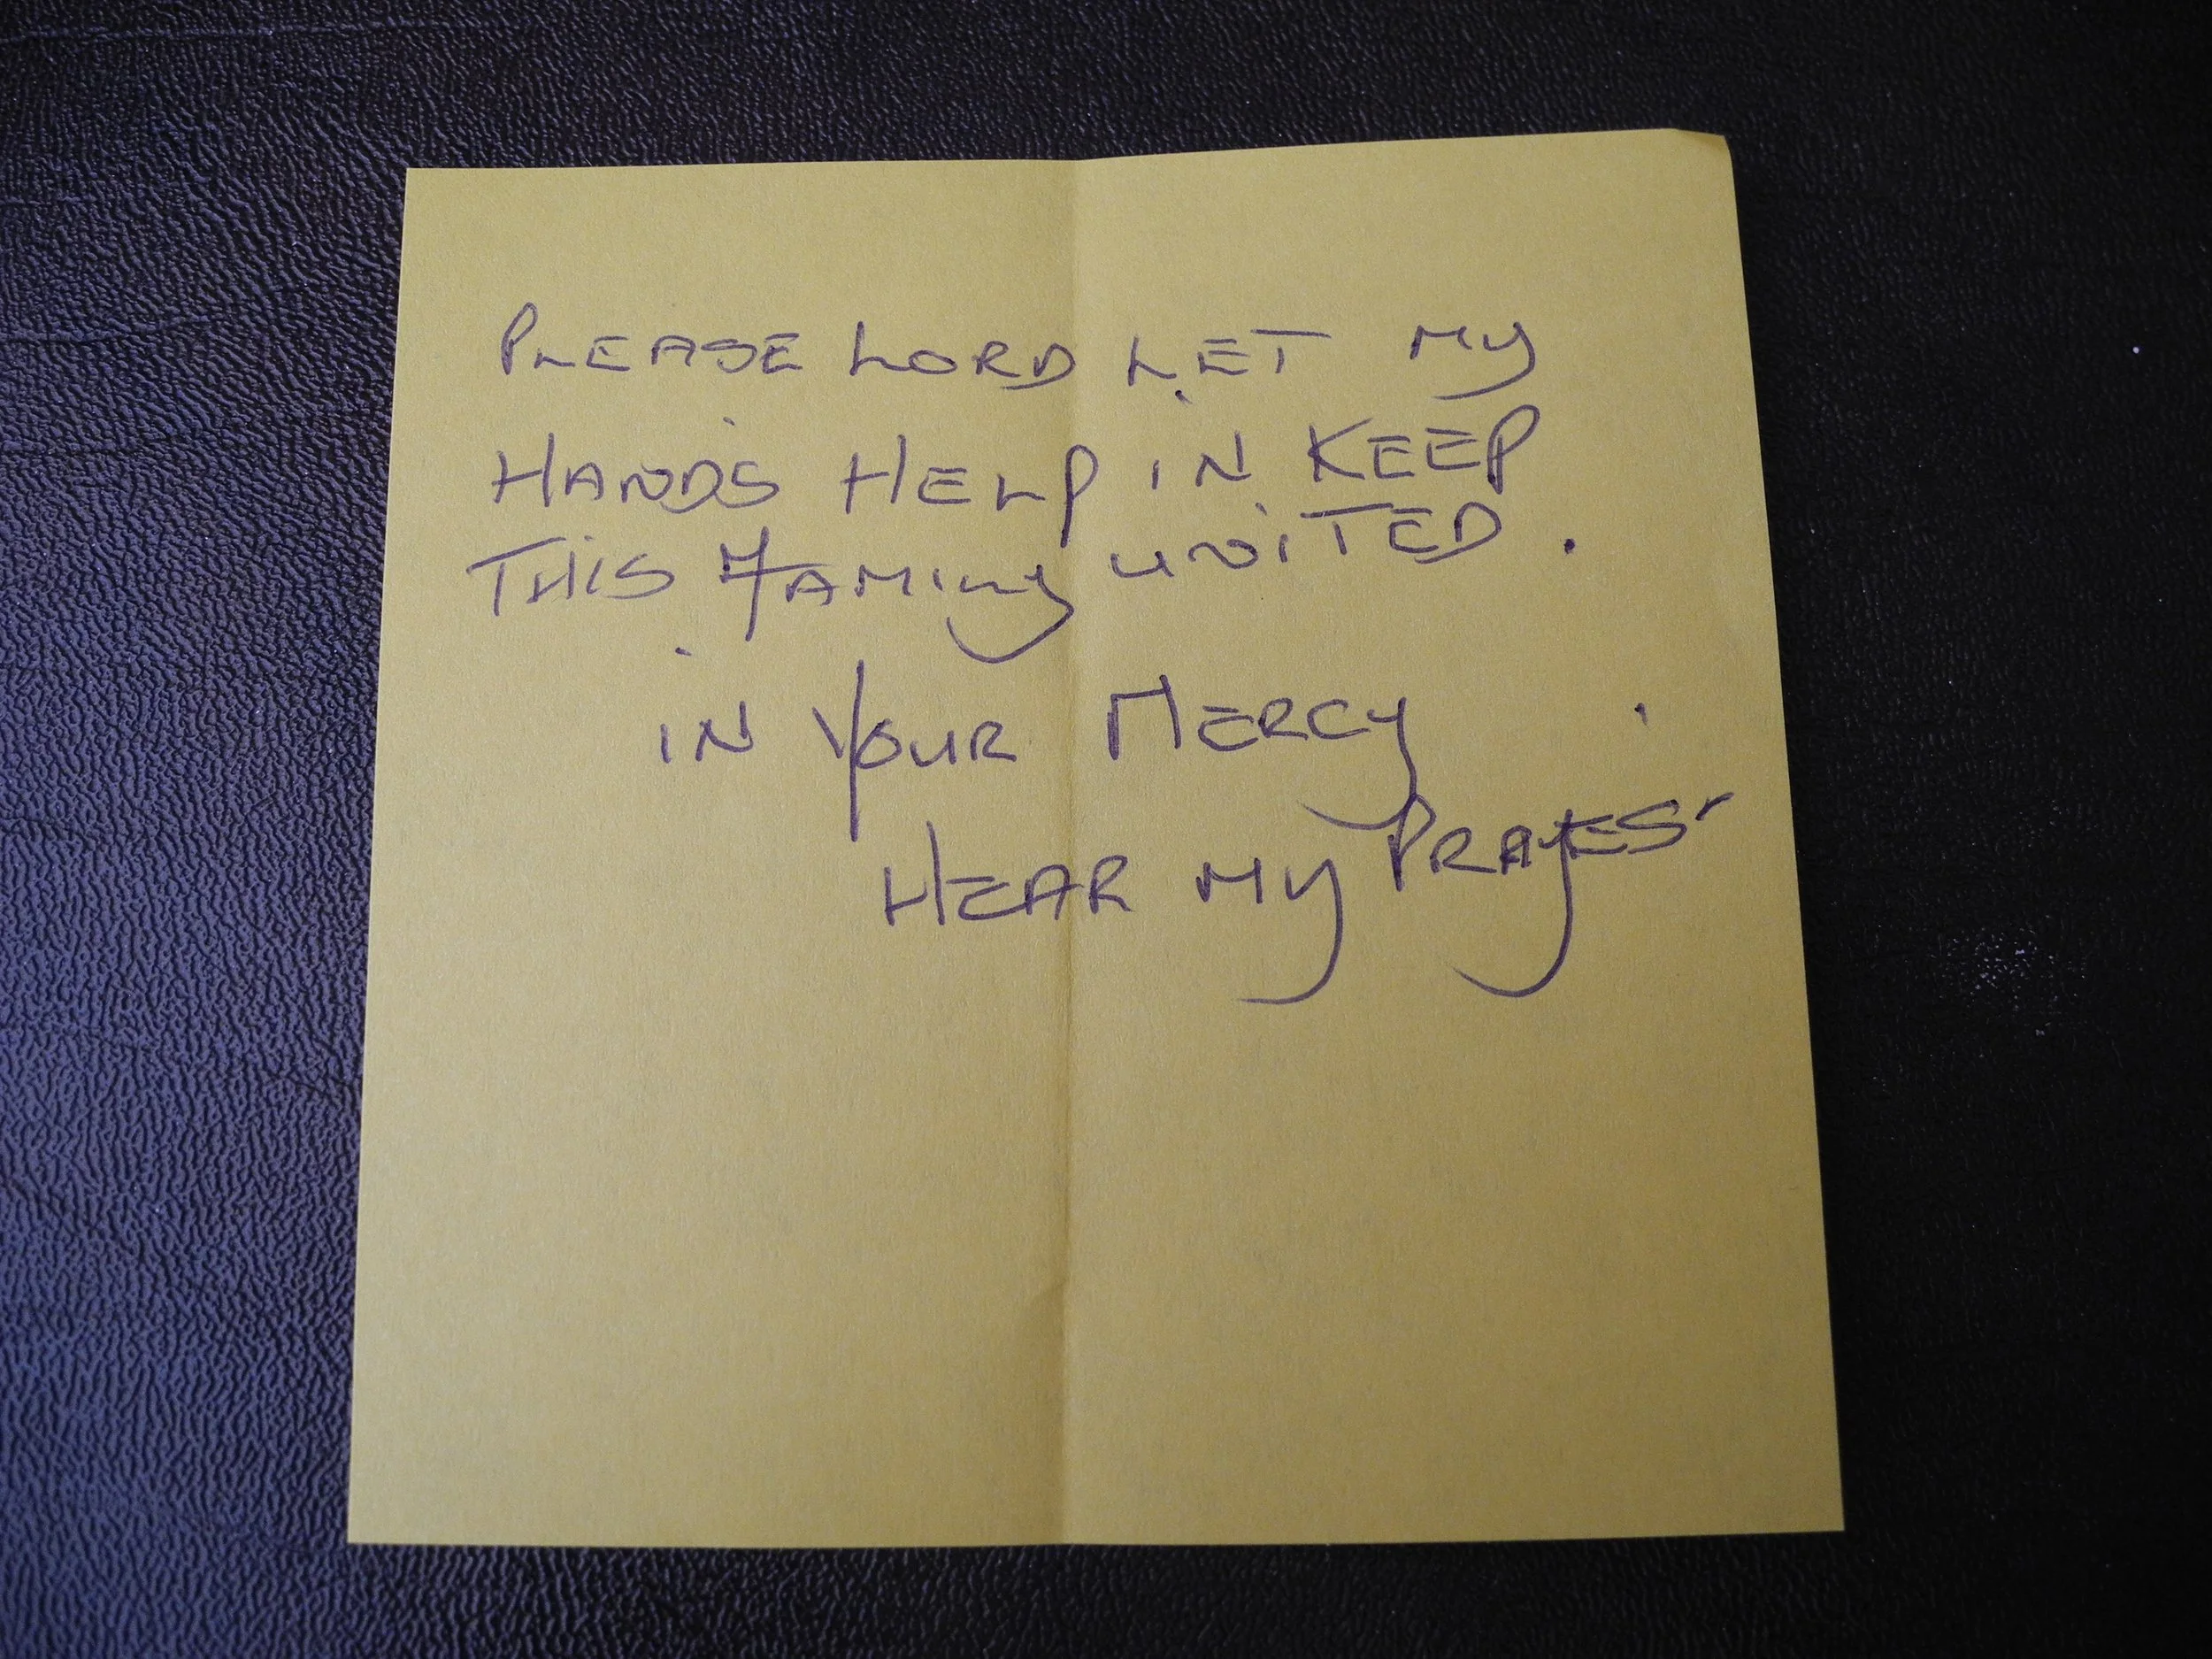 PLEASE LORD LET MY
HANDS HELP IN KEEP
THIS FAMILY UNITED.
IN YOUR MERCY
HEAR MY PRAYES